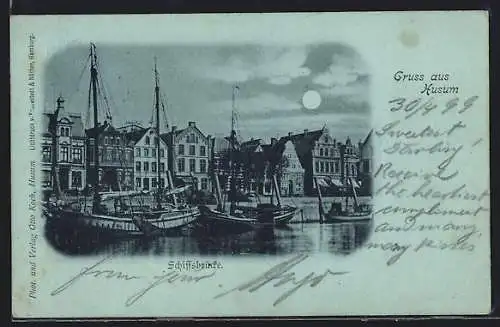 Gruss aus
Husum
30/4 99
Sweetest
Darling!
Receive
the heartiest
compliments
and many
many kisses
from your
Schiffsbrücke.
Phot. und Verlag Otto Koch, Husum. Lichtdruck v. & Höfner, Hamburg.